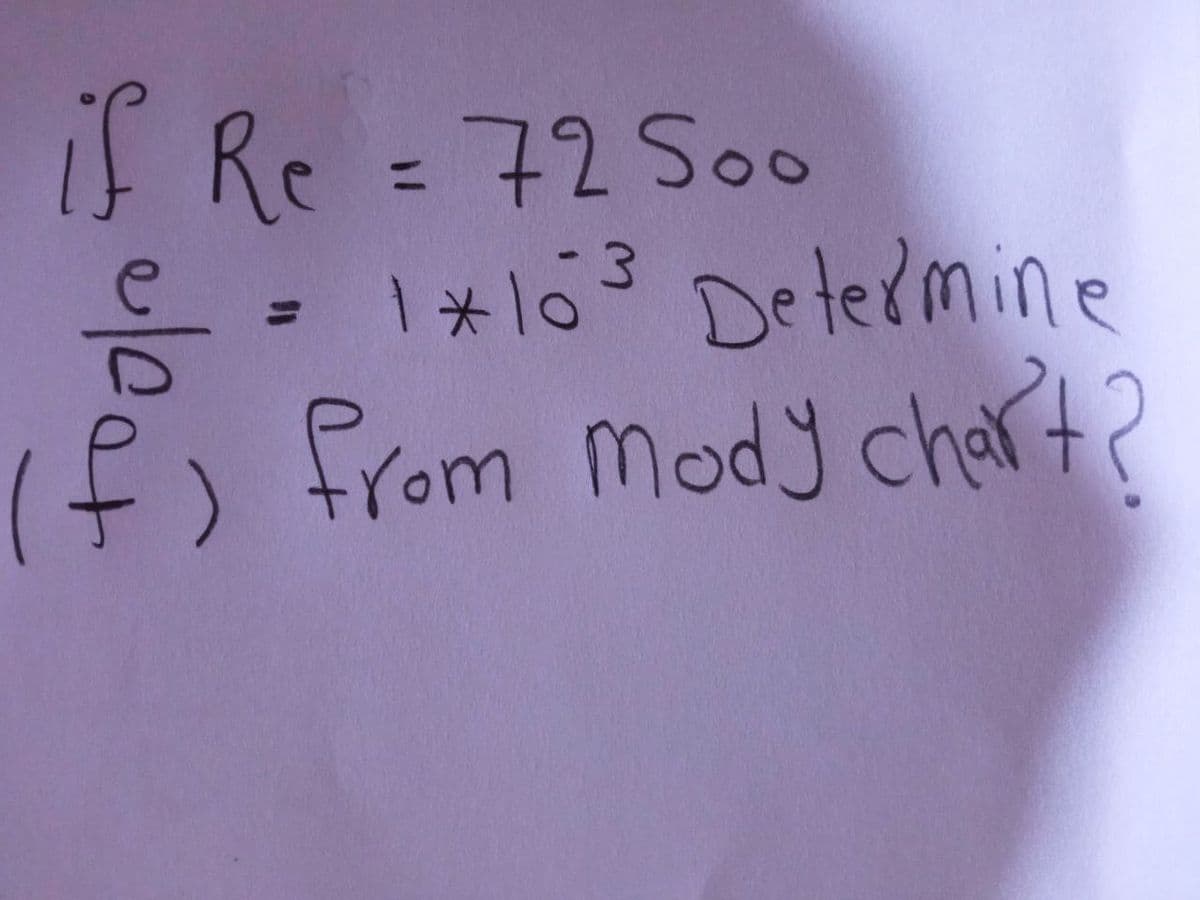 if Re = 72500
e/D = 1*10^-3 Determine
(f) from mody chart?